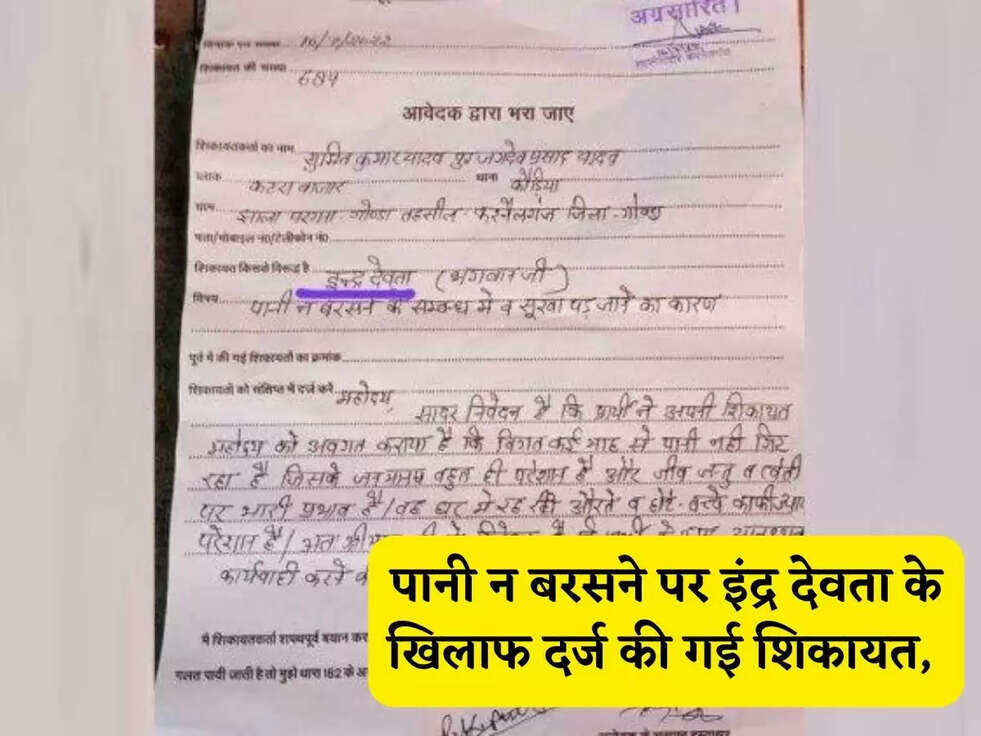 अग्रसारित।
16/7/2022
शिकायत की संख्या 684
आवेदक द्वारा भरा जाए
शिकायतकर्ता का नाम सुमित कुमार यादव पुत्र जगदेव प्रसाद यादव
ब्लाक कटरा बाजार थाना कौडिया
ग्राम झाला परगना-गोण्डा तहसील-करनैलगंज जिला-गोण्डा
पता/मोबाइल न0/टेलीफोन न0
शिकायत किसके विरूद्ध है इन्द्र देवता (भगवान जी)
विषय पानी न बरसने के सम्बन्ध मे व सूखा पड़ जाने का कारण
पूर्व में की गई शिकायतों का क्रमांक
शिकायतों को संक्षिप्त में दर्ज करें महोदय,
सादर निवेदन है कि प्रार्थी ने अपनी शिकायत
महोदय को अवगत कराया है कि विगत कई माह से पानी नही गिर
रहा है जिसके जनमानस बहुत ही परेशान है और जीव जन्तु व खेती
पर भारी प्रभाव है। घर मे रह रही औरते व छोटे-बच्चे काफी
परेशान है। अतः
कार्यवाही करने
मैं शिकायतकर्ता शपथपूर्व बयान
गलत पायी जाती है तो मुझे धारा 182 के
पानी न बरसने पर इंद्र देवता के
खिलाफ दर्ज की गई शिकायत,